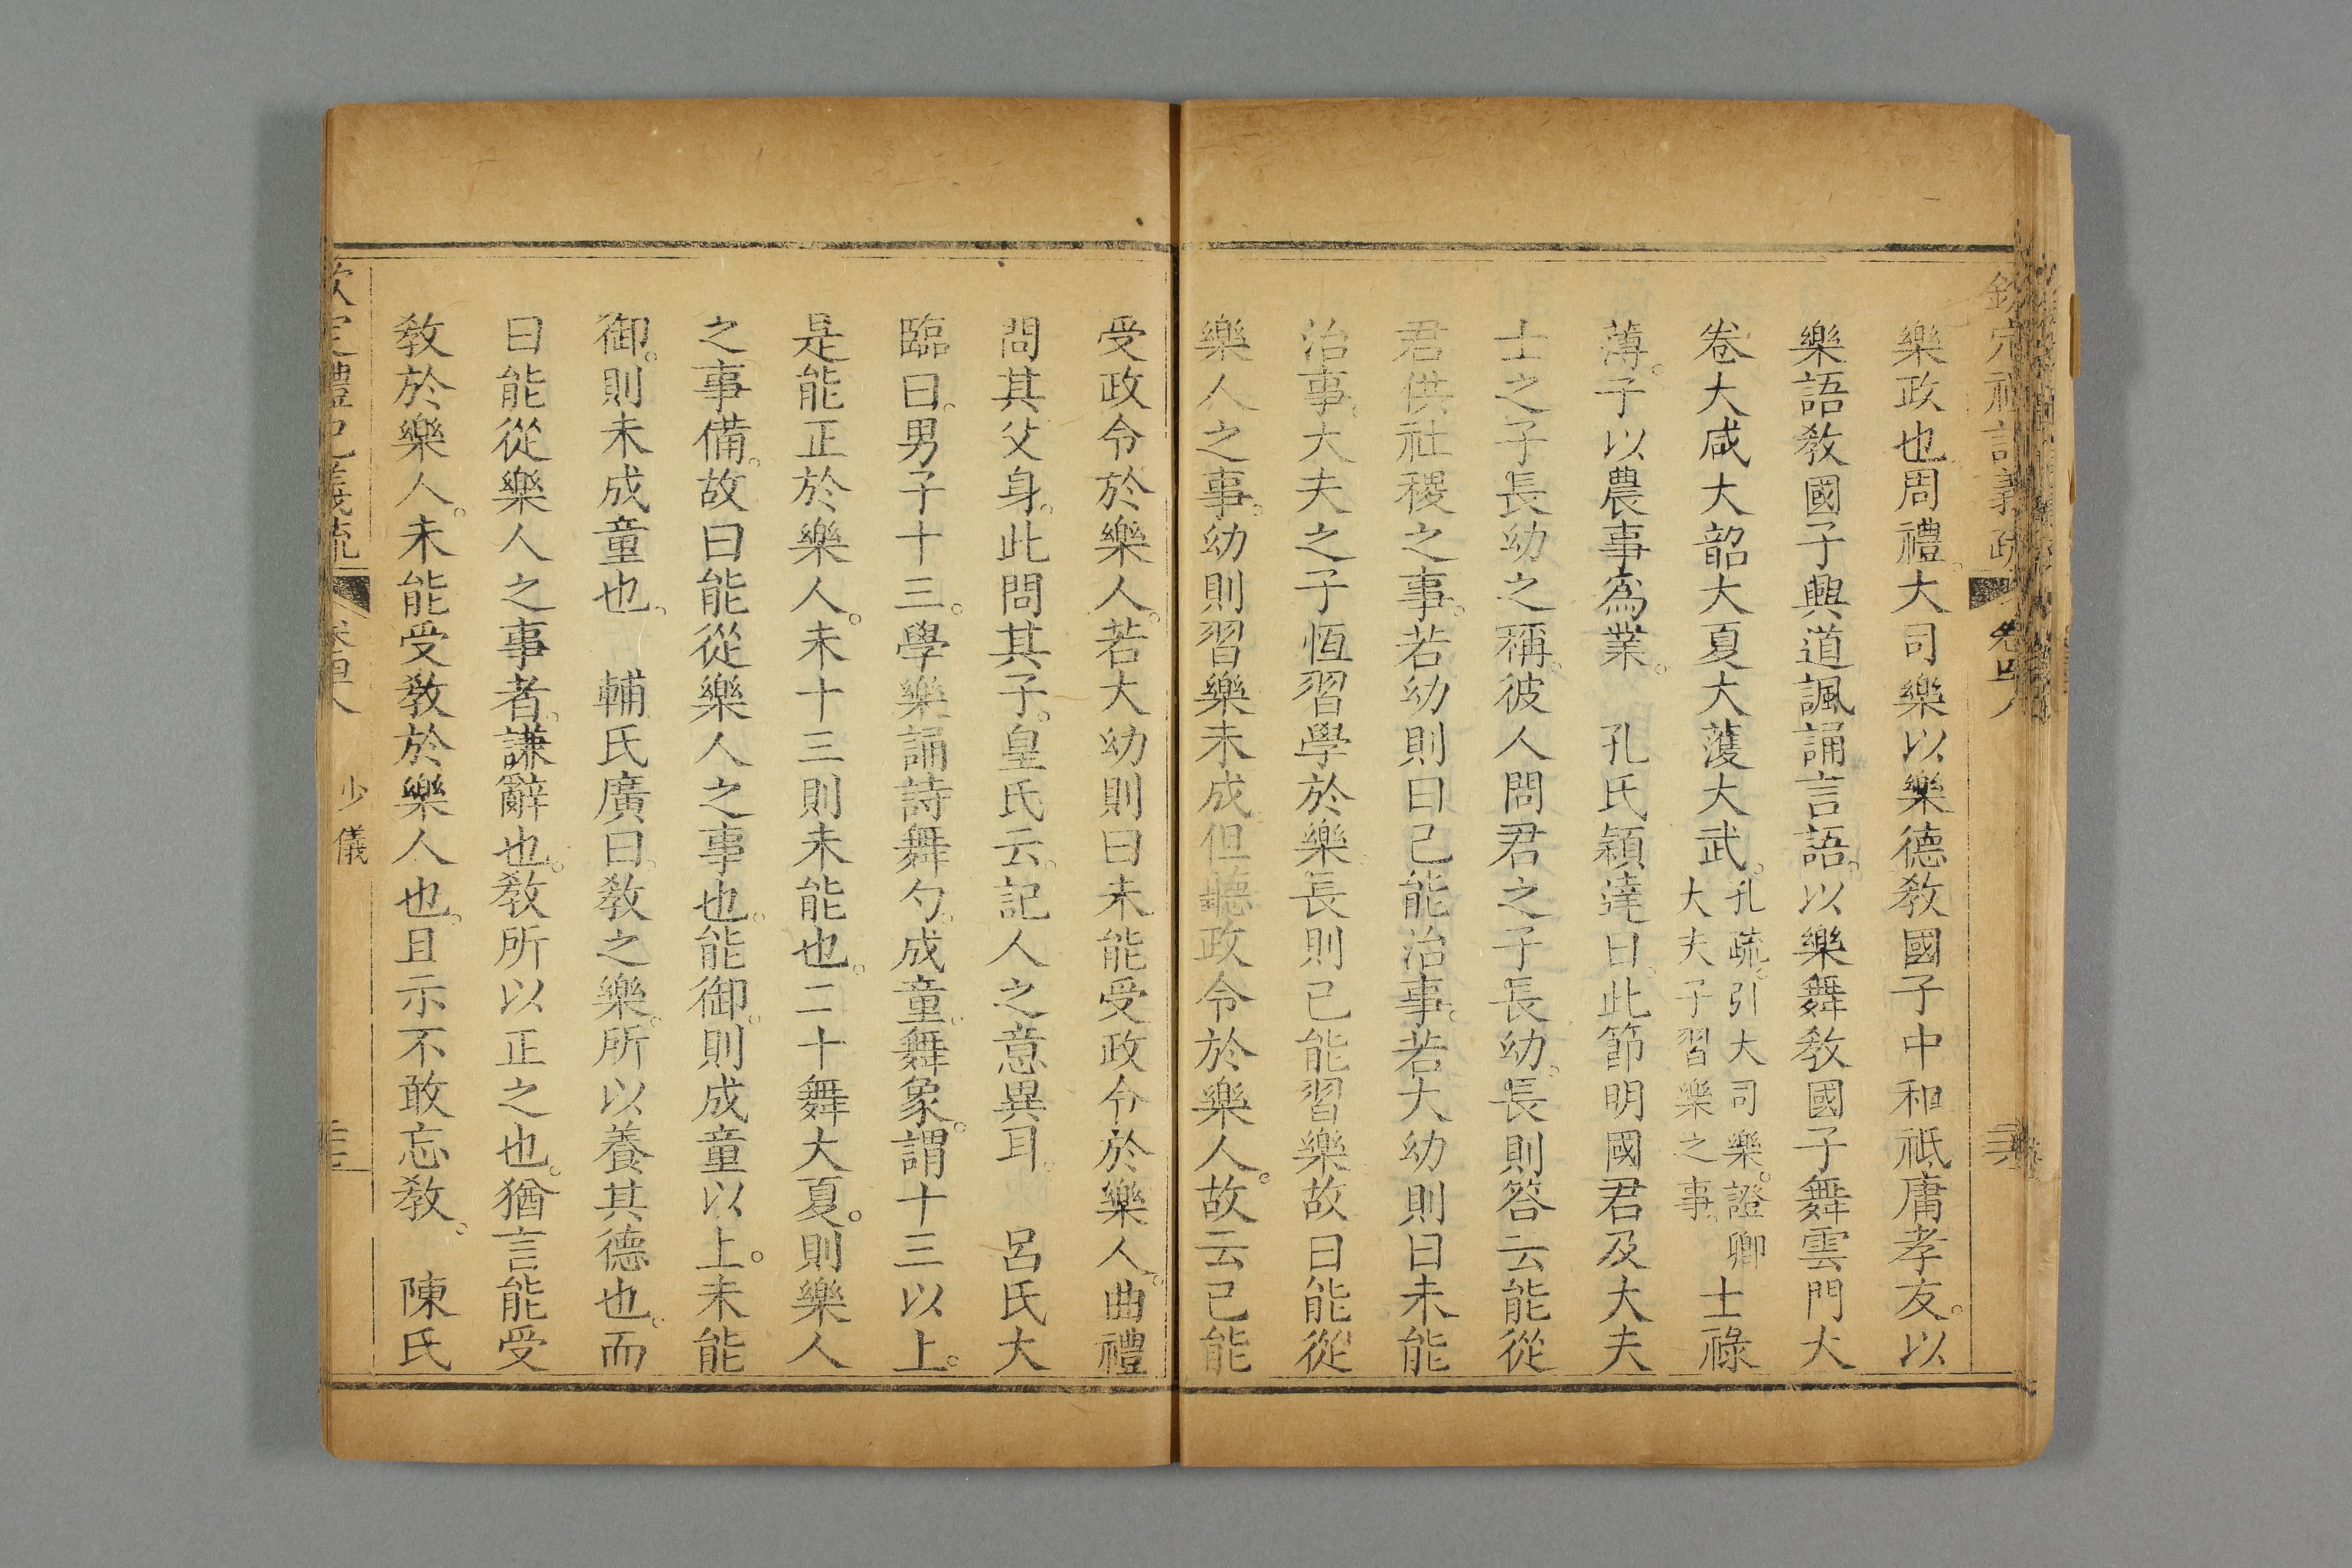 樂政也周禮。大司樂以樂德敎國子中和祗庸孝友。以
樂語敎國子興道諷誦言語。以樂舞敎國子舞雲門大
卷大咸大韶大夏大濩大武。孔疏。引大司樂。證卿大夫子習樂之事。士祿
薄。子以農事爲業。　孔氏穎達曰。此節明國君及大夫
士之子長幼之稱。彼人問君之子長幼。長則答云能從
君供社稷之事。若幼則曰已能治事。若大幼則曰未能
治事。大夫之子恆習學於樂。長則已能習樂。故曰能從
樂人之事。幼則習樂未成但聽政令於樂人。故云已能
受政令於樂人。若大幼則曰未能受政令於樂人。曲禮
問其父身。此問其子。皇氏云。記人之意異耳。　呂氏大
臨曰。男子十三。學樂誦詩舞勺。成童。舞象。謂十三以上。
是能正於樂人。未十三則未能也。二十舞大夏。則樂人
之事備。故曰能從樂人之事也。能御。則成童以上。未能
御。則未成童也。　輔氏廣曰。敎之樂。所以養其德也。而
曰能從樂人之事者。謙辭也。敎所以正之也。猶言能受
敎於樂人。未能受敎於樂人也。且示不敢忘敎。　陳氏
欽定禮記義疏　卷四八　少儀